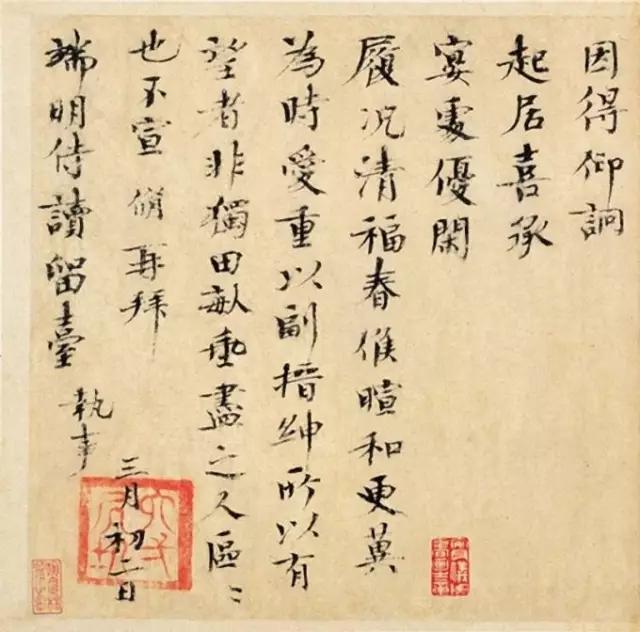 因得仰詗
起居喜承
宴處優閑
履況清福春候暄和更冀
為時愛重以副搢紳所以有
望者非獨田畝垂盡之人區〻
也不宣 脩再拜
端明侍讀留臺 執事
三月初二日